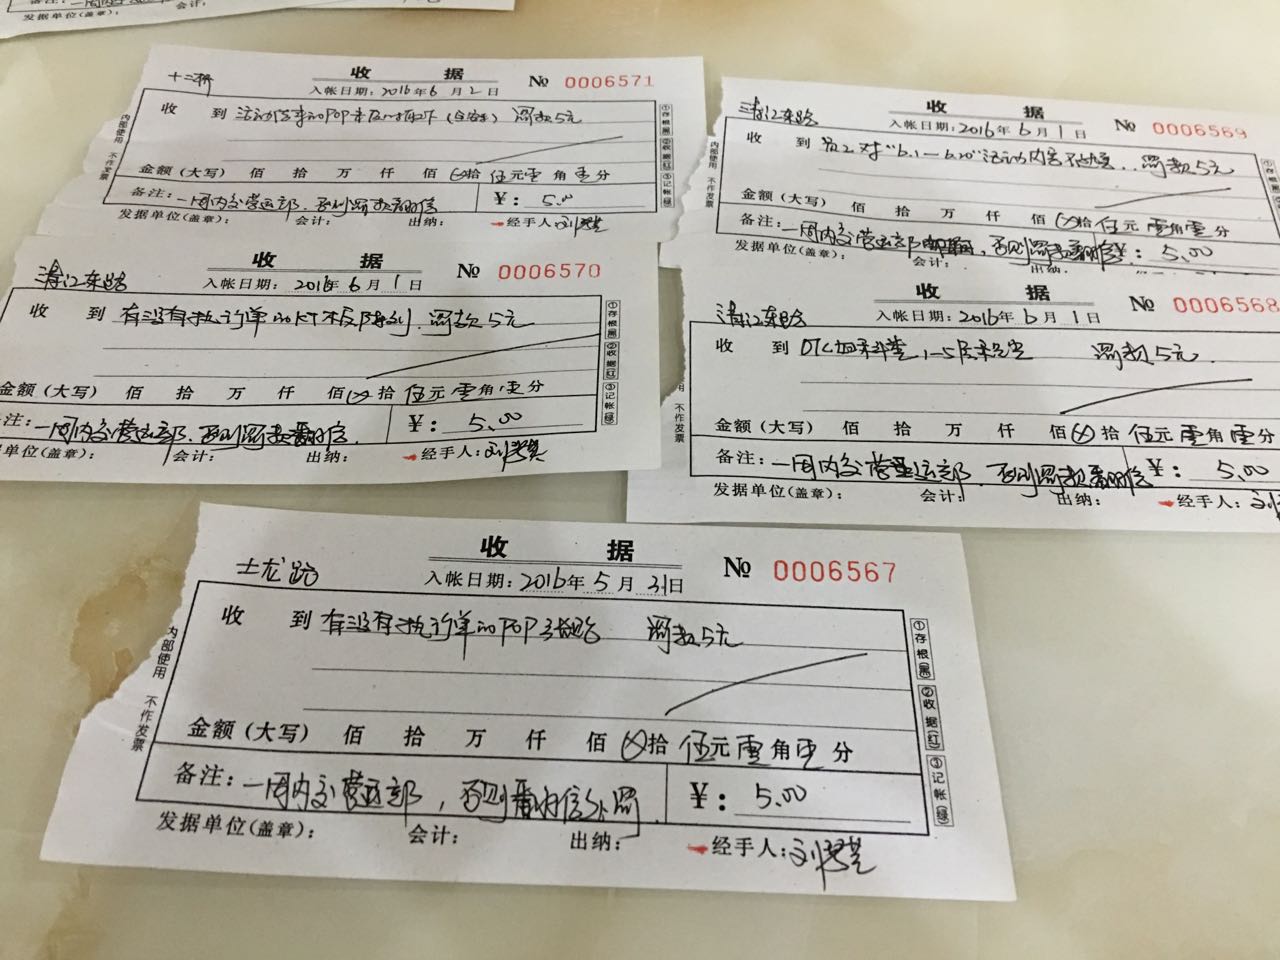 备注:一周内交
发据单位(盖章): 会计: 出纳:
十二桥
收 据
№ 0006571
入帐日期:2016年6月2日
收 到 活动结束的POP未及时取下 罚款5元
金额(大写) 佰 拾 万 仟 佰 ⊗拾 伍元零角零分
备注:一周内交营运部,否则罚款翻倍 ¥:5.00
发据单位(盖章): 会计: 出纳: 经手人:刘
内部使用 不作发票
①存根(黑) ②收据(红) ③记帐(绿)
清江东路
收 据
№ 0006569
入帐日期:2016年6月1日
收 到 员工对"6.1—6.20"活动内容不熟悉.. 罚款5元
金额(大写) 佰 拾 万 仟 佰 ⊗拾 伍元零角零分
备注:一周内交营运部 否则罚款翻倍 ¥:5.00
发据单位(盖章): 会计: 出纳:
内部使用 不作发票
清江东路
收 据
№ 0006570
入帐日期:2016年6月1日
收 到 有没有执行单的KT板陈列,罚款5元
金额(大写) 佰 拾 万 仟 佰⊗拾 伍元零角零分
注:一周内交营运部.否则罚款翻倍. ¥:5.00
单位(盖章): 会计: 出纳: 经手人:刘
①存根(黑) ②收据(红) ③记帐(绿)
清江东路
收 据
№ 0006568
入帐日期:2016年6月1日
收 到 OTC 1-5层未 罚款5元.
金额(大写) 佰 拾 万 仟 佰⊗拾 伍元零角零分
备注:一周内交营运部,否则罚款翻倍 ¥:5.00
发据单位(盖章): 会计: 出纳: 经手人:刘
不作发票
士龙路
收 据
№ 0006567
入帐日期:2016年5月31日
收 到 有没有执行单的POP张贴 罚款5元
金额(大写) 佰 拾 万 仟 佰⊗拾 伍元零角零分
备注:一周内交营运部,否则翻倍处罚. ¥:5.00
发据单位(盖章): 会计: 出纳: 经手人:刘
内部使用 不作发票
①存根(黑) ②收据(红) ③记帐(绿)